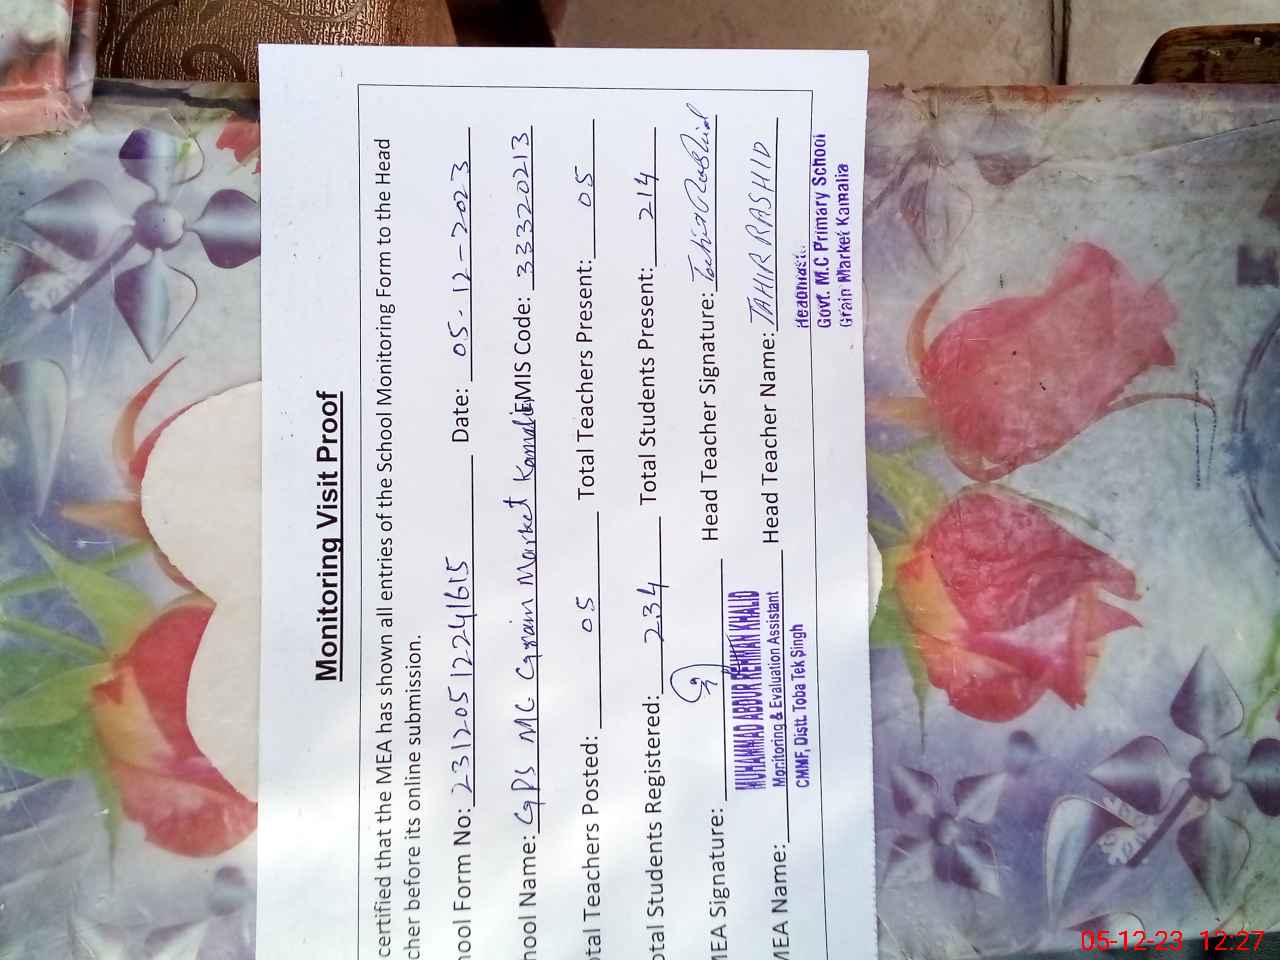 Monitoring Visit Proof
certified that the MEA has shown all entries of the School Monitoring Form to the Head
cher before its online submission.
hool Form No: 23120512241615 Date: 05-12-2023
hool Name: GPS MC Grain Market Kamalia EMIS Code: 33320213
otal Teachers Posted: 05 Total Teachers Present: 05
otal Students Registered: 234 Total Students Present: 214
MEA Signature: Head Teacher Signature: Tahir Rashid
MUHAMMAD ABDUR REHMAN KHALID
MEA Name: Monitoring & Evaluation Assistant Head Teacher Name: TAHIR RASHID
CMMF, Distt. Toba Tek Singh
Govt. M.C Primary School
Grain Market Kamalia
05-12-23 12:27